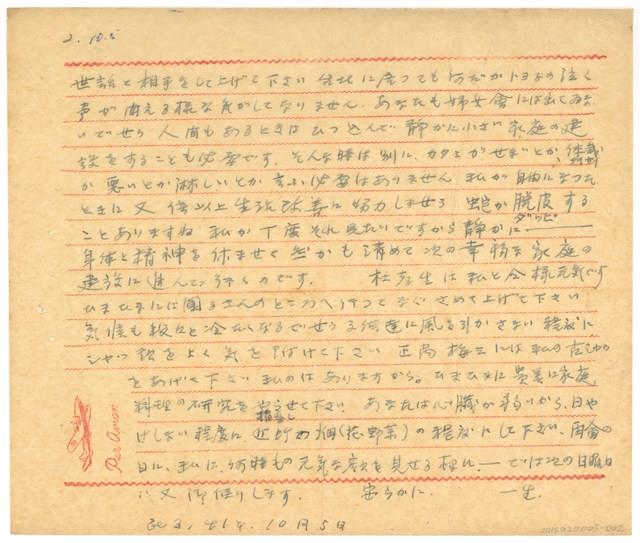 2. 10.5
世話と相手をして上げて下さい 会社に居っても何だかトヨ子の泣く
声が聞える様な気がしてなりません。あなたも婦女会には出てゐな
いでせう 人間もあるときはひっ込んで静かに小さい家庭の建
設をすることも必要です。そんな時は別に、カタミがせまいとか
が悪いとか淋しいとか言ふ必要はありません 私が自由になった
ときに又 倍以上生活改善に努力しませう 蛇が脱皮する
ダッピ
ことありますね 私が丁度それ見たいですから静かに
身体と精神を休ませて 然かも清めて次の幸福な家庭の
建設に進んで行くのです。 私と全様元気です
ひまひまには さんのところへ行って なぐさめて上げて下さい
気候も段々と冷たくなるでせう 子供達に風を引かさない程度に
シャツ類をよく気を付けて下さい 正 には私の
をあげて下さい 私のはありますから。ひまひまに 家庭
料理の研究を させて下さい あなたは心臓が弱いから、日や
けしない程度に、近所の畑(花野菜)の程度にして下さい、面会の
日に、私に、何時もの元気な顔を見せる様に— では次の日曜日
に又御便りします。 安らかに 一生
10月5日
Par Avion
2015020005-002